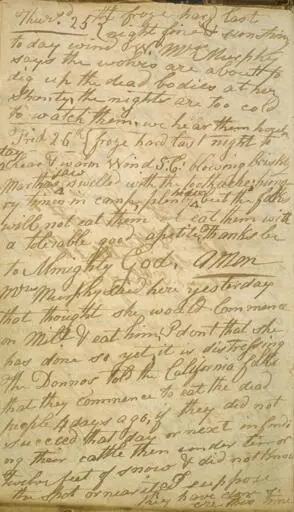 Thursd. 25th froze hard last
night fine & sunshiny
to day wind W. Mrs Murphy
says the wolves are about to
dig up the dead bodies at her
shanty, the nights are too cold
to watch them, we hear them howl
Frid 26th froze hard last night to
day clear & warm Wind S.E. blowing briskly
Marthas jaw swelled with the toothache; hung
ry times in camp, plenty hides but the folks
will not eat them we eat them with
a tolerable good apetite, Thanks be
to Almighty God. Amen
Mrs Murphy said here yesterday
that thought she would commence
on Milt. & eat him, I dont that she
has done so yet, it is distressing
The Donnos told the California folks
that they commence to eat the dead
people 4 days ago, if they did not
succeed that day or next in findi
ng their cattle then under ten or
twelve feet of snow & did not know
the spot or near it, I suppose
they have done so ere this time